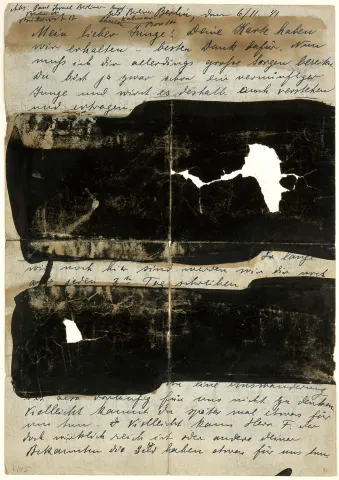 den 6/11. 41
Mein lieber Junge! Deine Karte haben
wir erhalten – besten Dank dafür. Nun
muß ich dir allerdings große Sorgen bereiten
Du bist ja zwar schon ein vernünftiger
Junge und wirst es deshalb auch verstehen
und ertragen.
So lange
wir noch hier sind werden wir dir noch
jeden 3ten Tag schreiben
eine Auswanderung
ist vorläufig für uns nicht zu denken
Vielleicht kannst du später mal etwas für
uns tun. Vielleicht kann Herr F. der
doch wirklich reich ist oder andere deiner
Bekannten die Geld haben etwas für uns tun